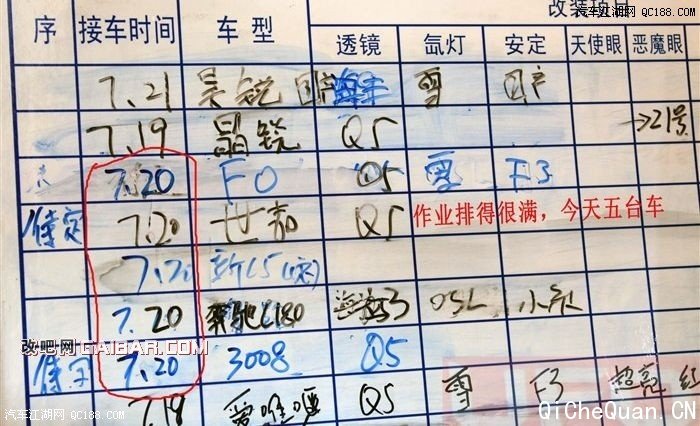 汽车江湖网 QC188.COM
改装项目
序 接车时间 车型 透镜 氙灯 安定 天使眼 恶魔眼
7.21 昊锐 海5 雪 国产
7.19 晶锐 Q5 →21号
7.20 F0 Q5 雪 F3
待定 7.20 世嘉 Q5
作业排得很满，今天五台车
7.20
7.20 奔驰C180 海5 OSL 小
改吧网 GAIBAR.COM
7.20 3008 Q5
7.19 爱唯欧 Q5 雪 F3 超亮 红
汽车江湖网 QC188.COM
QiCheQuan.CN